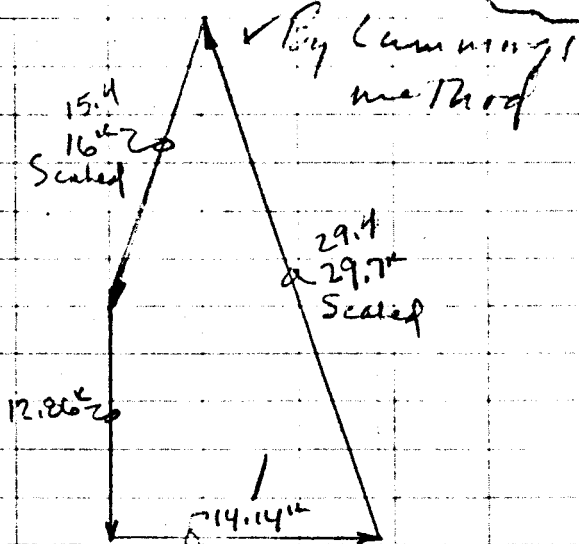 ✓ By Cummings
method
15.4
16ᵏ
Scaled
29.4
29.7ᵏ
Scaled
12.86ᵏ
14.14ᵏ